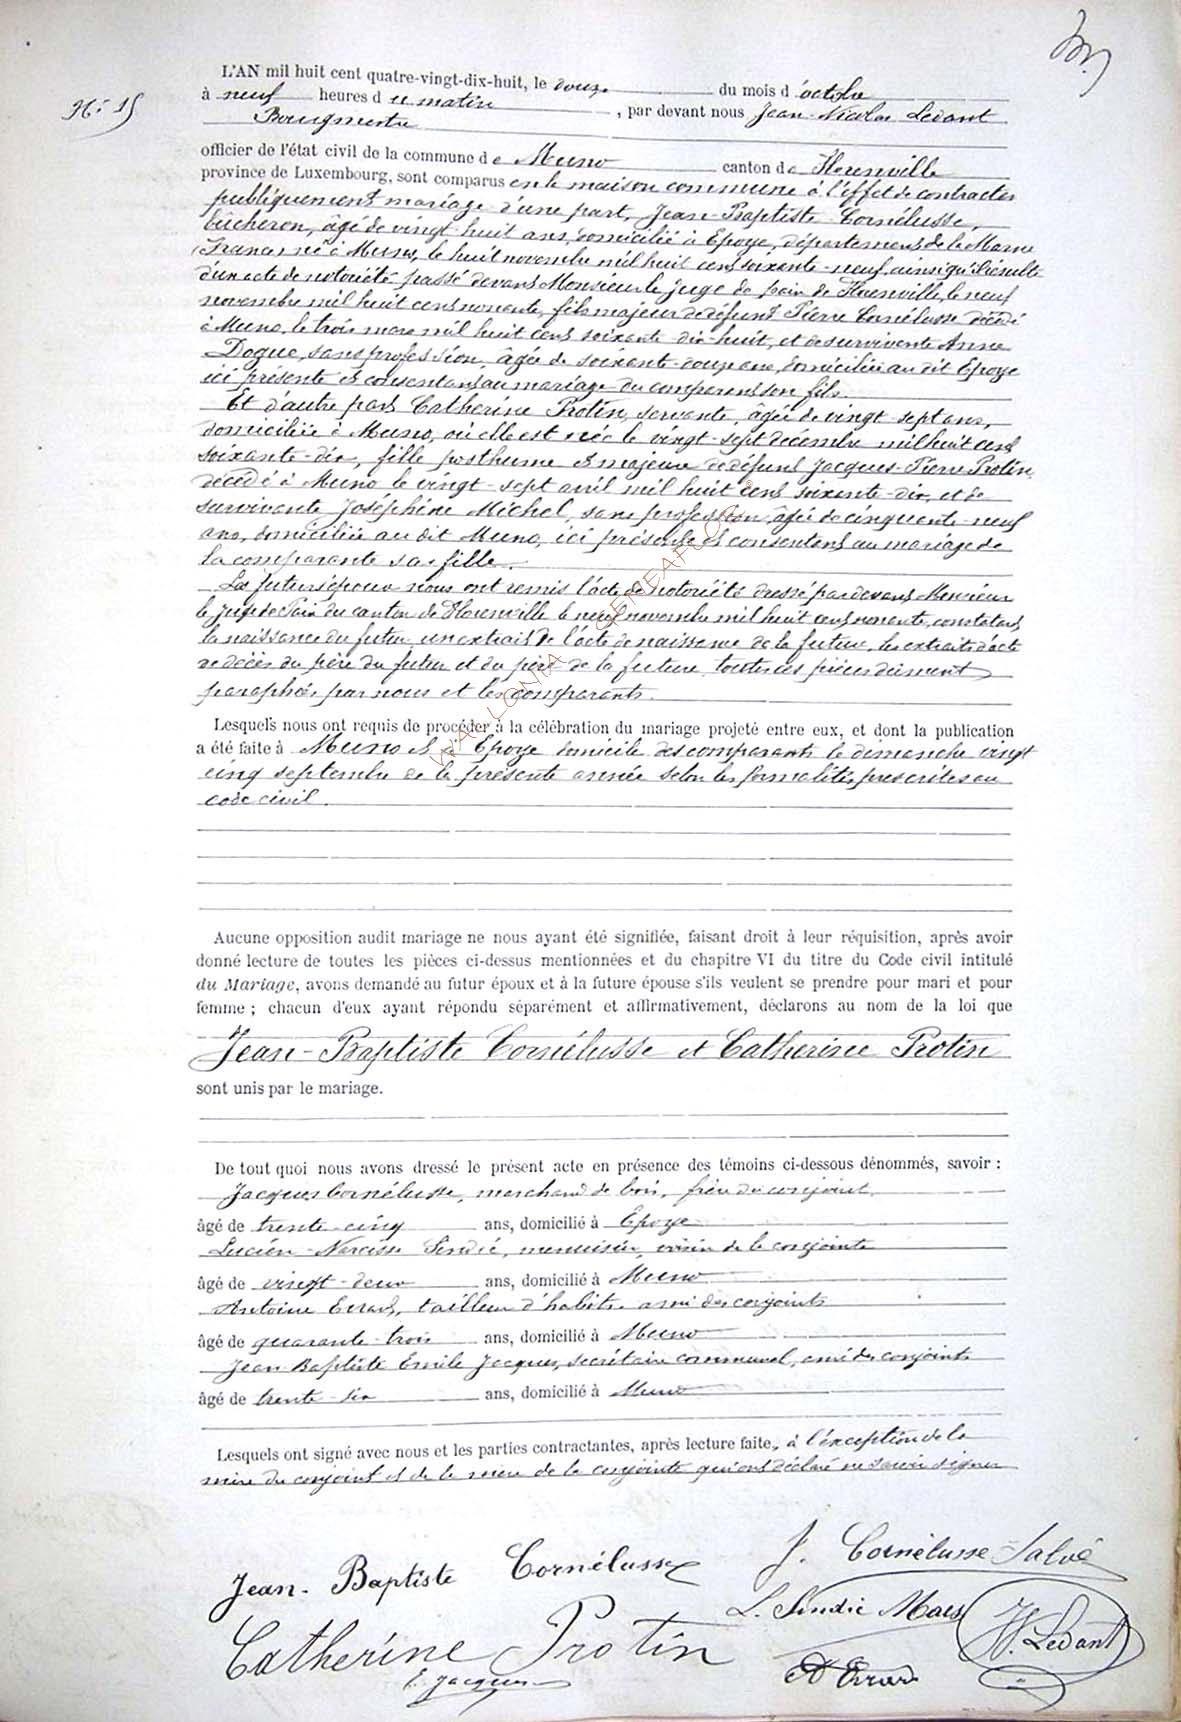 N° 15
L'AN mil huit cent quatre-vingt-dix-huit, le douze du mois d'octobre
à neuf heures du matin, par devant nous Jean-Nicolas Ledant
Bourgmestre
officier de l'état civil de la commune de Muno canton de Florenville
province de Luxembourg, sont comparus en la maison commune à l'effet de contracter
publiquement mariage d'une part, Jean-Baptiste Cornélusse,
bûcheron, âgé de vingt-huit ans, domicilié à Epoye, département de la Marne
(France) né à Muno, le huit novembre mil huit cent soixante-neuf, ainsi qu'il résulte
d'un acte de notoriété passé devant Monsieur le juge de paix de Florenville, le neuf
novembre mil huit cent nonante, fils majeur de défunt Pierre Cornélusse décédé
à Muno, le trois mars mil huit cent soixante dix-huit, et de survivante Anne
Doque, sans profession, âgée de soixante-douze ans, domiciliée au dit Epoye
ici présente et consentant au mariage du comparent son fils.
Et d'autre part Catherine Protin, servante, âgée de vingt-sept ans,
domiciliée à Muno, où elle est née le vingt-sept décembre mil huit cent
soixante-dix, fille posthume et majeure de défunt Jacques-Pierre Protin,
décédé à Muno le vingt-sept avril mil huit cent soixante-dix, et de
survivante Joséphine Michel, sans profession, âgée de cinquante-neuf
ans, domiciliée au dit Muno, ici présente et consentant au mariage de
la comparante sa fille.
Les futurs époux nous ont remis l'acte de notoriété dressé pardevant Monsieur
le Juge de Paix du canton de Florenville le neuf novembre mil huit cent nonante, constatant
la naissance du futur, un extrait de l'acte de naissance de la future, les extraits d'acte
de décès du père du futur et du père de la future, toutes ces pièces dûment
paraphées par nous et les comparants.
Lesquels nous ont requis de procéder à la célébration du mariage projeté entre eux, et dont la publication
a été faite à Muno et Epoye domicile des comparants le dimanche vingt
cinq septembre de la présente année selon les formalités prescrites au
code civil.
Aucune opposition audit mariage ne nous ayant été signifiée, faisant droit à leur réquisition, après avoir
donné lecture de toutes les pièces ci-dessus mentionnées et du chapitre VI du titre du Code civil intitulé
du Mariage, avons demandé au futur époux et à la future épouse s'ils veulent se prendre pour mari et pour
femme ; chacun d'eux ayant répondu séparément et affirmativement, déclarons au nom de la loi que
Jean-Baptiste Cornélusse et Catherine Protin
sont unis par le mariage.
De tout quoi nous avons dressé le présent acte en présence des témoins ci-dessous dénommés, savoir :
Jacques Cornélusse, marchand de bois, frère du conjoint,
âgé de trente-cinq ans, domicilié à Epoye
Lucien-Narcisse Sindié, menuisier, voisin de la conjointe
âgé de vingt-deux ans, domicilié à Muno
Antoine Evrard, tailleur d'habits, ami des conjoints
âgé de quarante-trois ans, domicilié à Muno
Jean-Baptiste Emile Jacques, secrétaire communal, ami des conjoints
âgé de trente-six ans, domicilié à Muno
Lesquels ont signé avec nous et les parties contractantes, après lecture faite, à l'exception de la
mère du conjoint et de la mère de la conjointe qui ont déclaré ne savoir signer
Jean-Baptiste Cornélusse J. Cornélusse-Salvé
L. Sindic Maes
Catherine Protin N. Ledant
E. Jacques A Evrard
WALLONIA GENEAFUCHS